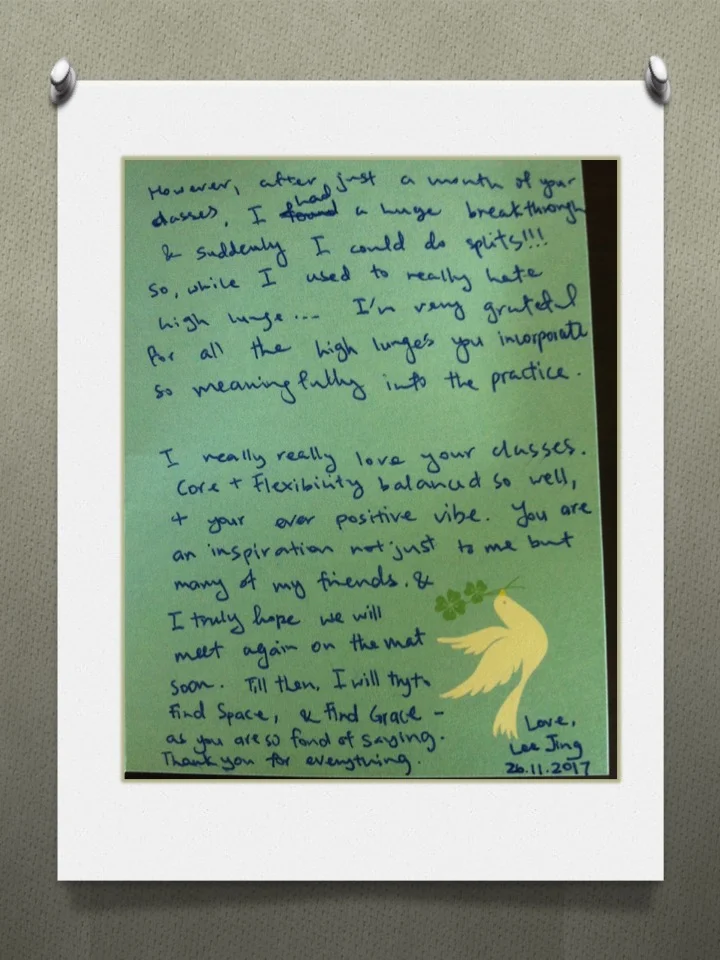 However, after just a month of your
classes, I found had a huge breakthrough
& suddenly I could do splits!!!
So, while I used to really hate
high lunge.... I'm very grateful
for all the high lunges you incorporate
so meaningfully into the practice.
I really really love your classes.
Core + Flexibility balanced so well,
+ your ever positive vibe. You are
an inspiration not just to me but
many of my friends. &
I truly hope we will
meet again on the mat
soon. Till then, I will try to
Find Space, & Find Grace -
as you are so fond of saying.
Thank you for everything.
Love,
Lee Jing
26.11.2017